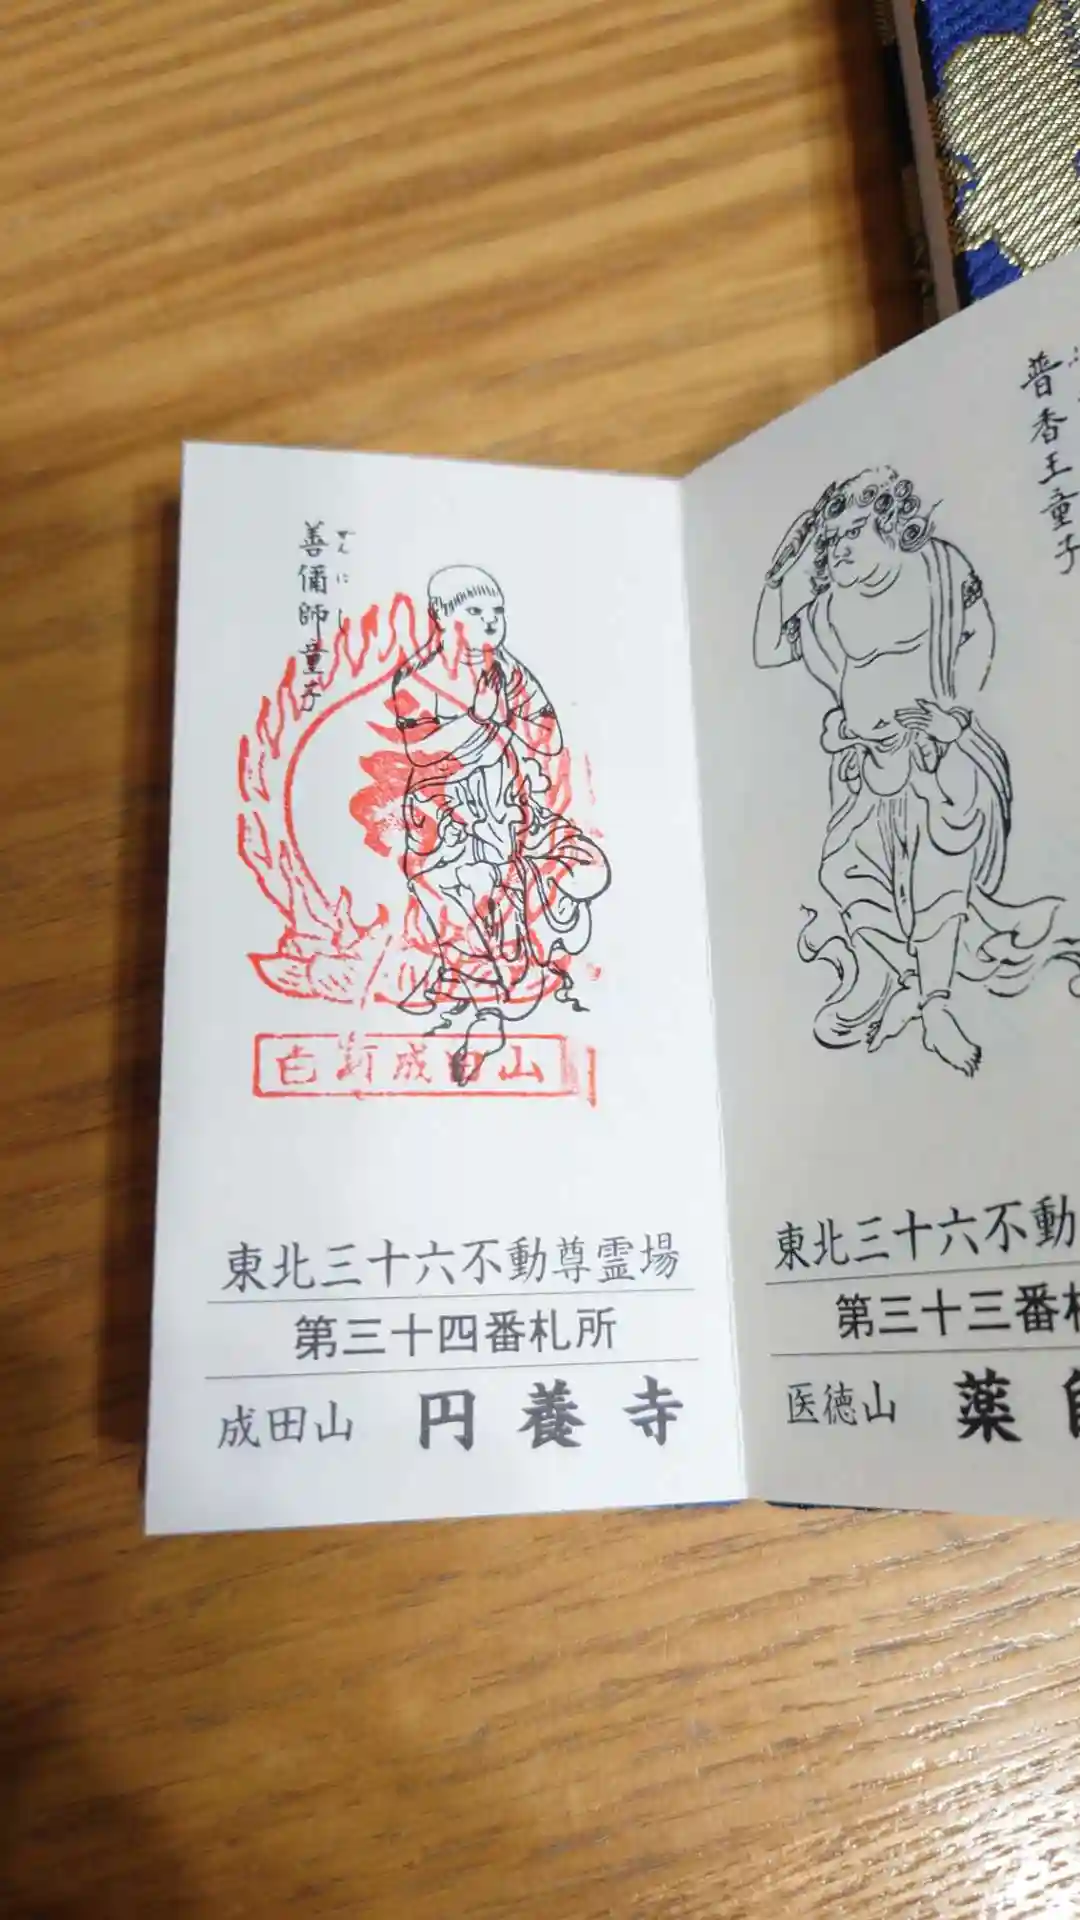 善儞師童子
せんにし
成田山
東北三十六不動尊霊場
第三十四番札所
成田山 円養寺
普香王童子
東北三十六不動
第三十三番
医徳山 薬